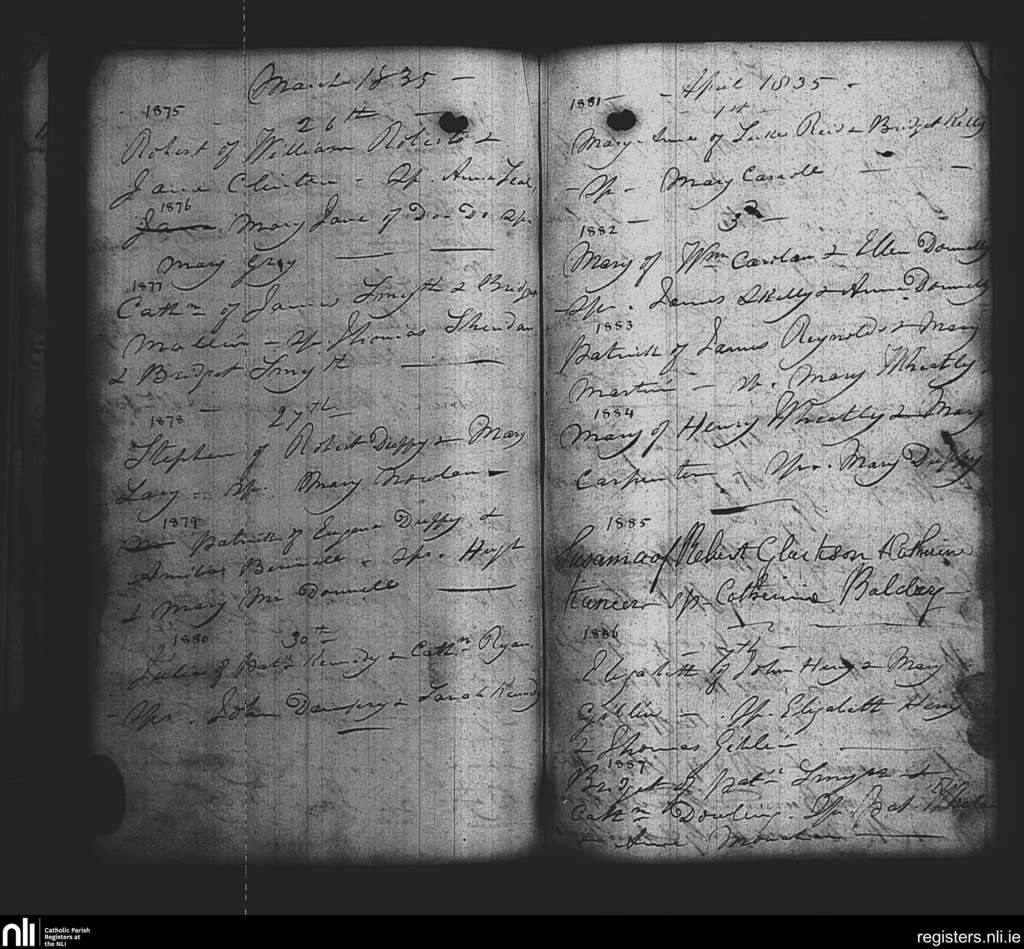 March 1835 -
1875
26th
Robert of William Roberts &
Jane Clinton - Sp. Anne
1876
Jane Mary Jane of Do & Do Sp.
Mary Gray
1877
Cathn of James Smyth & Bridget
Mallin - Sp. Thomas Sheridan
& Bridget Smyth
1878
27th
Stephen of Robert Duffy & Mary
Lacy - Sp. Mary Nowlan -
1879
Patrick of Eugene Duffy &
Amelia - Sps. Hugh
& Mary Mc Donnell
1880 30th
Julia of Patk Kennedy & Cathn Ryan
- Sps. John Dempsey & Sarah Kennedy
- April 1835 -
1881
1st
Mary Anne of Luke Reid & Bridget Kelly
- Sp - Mary Carroll -
1882 - 3rd -
Mary of Wm Carolan & Ellen Donnelly
Sps. James Skelly & Anne Donnelly
1883
Patrick of James Reynolds & Mary
Martin - Sp. Mary Wheatly
1884
Mary of Henry Wheatly & Mary
Carpenter - Sps. Mary Duffy
1885
Susanna of Robert Clarkson Katherine
sp Catherine
1886
- 7th -
Elizabeth of John Henry & Mary
Giblin - Sp. Elizabeth Henry
& Thomas Giblin
1887
Bridget of Patk Smyth &
Cathn Dowling. Sp. Pat.
& Anne
nli
Catholic Parish
Registers at
the NLI
registers.nli.ie